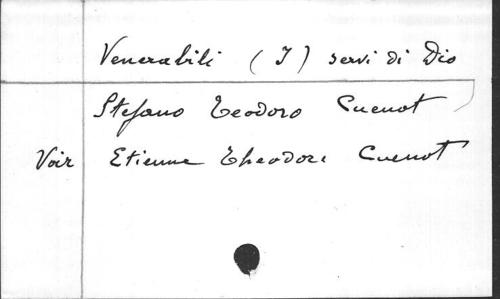 Venerabili (I) servi di Dio
Stefano Teodoro Cuenot )
Voir Etienne Theodore Cuenot